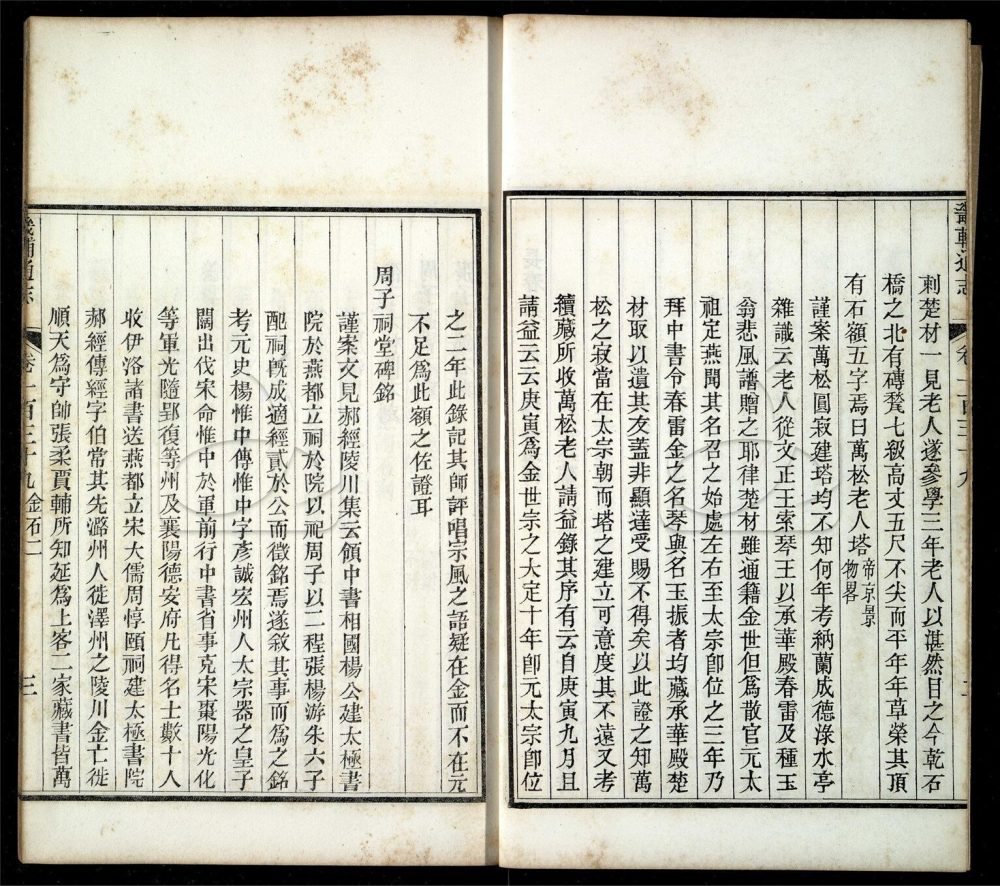 畿輔通志
卷一百三十九
刺楚材一見老人遂參學三年老人以湛然目之今乾石
橋之北有磚甃七級高丈五尺不尖而平年年草榮其頂
有石額五字焉曰萬松老人塔帝京景物畧
謹案萬松圓寂建塔均不知何年考納蘭成德淥水亭
雜識云老人從文正王索琴王以承華殿春雷及種玉
翁悲風譜贈之耶律楚材雖通籍金世但爲散官元太
祖定燕聞其名召之始處左右至太宗卽位之三年乃
拜中書令春雷金之名琴與名玉振者均藏承華殿楚
材取以遺其友蓋非顯達受賜不得矣以此證之知萬
松之寂當在太宗朝而塔之建立可意度其不遠又考
續藏所收萬松老人請益錄其序有云自庚寅九月且
請益云云庚寅爲金世宗之大定十年卽元太宗卽位
之二年此錄記其師評唱宗風之語疑在金而不在元
不足爲此額之佐證耳
周子祠堂碑銘
謹案文見郝經陵川集云領中書相國楊公建太極書
院於燕都立祠於院以祀周子以二程張楊游朱六子
配祠旣成適經貳於公而徵銘焉遂敘其事而爲之銘
考元史楊惟中傳惟中字彥誠宏州人太宗器之皇子
闊出伐宋命惟中於軍前行中書省事克宋棗陽光化
等軍光隨郢復等州及襄陽德安府凡得名士數十人
收伊洛諸書送燕都立宋大儒周惇頤祠建太極書院
郝經傳經字伯常其先潞州人徙澤州之陵川金亡徙
順天爲守帥張柔賈輔所知延爲上客二家藏書皆萬
畿輔通志
卷一百三十九 金石二
三